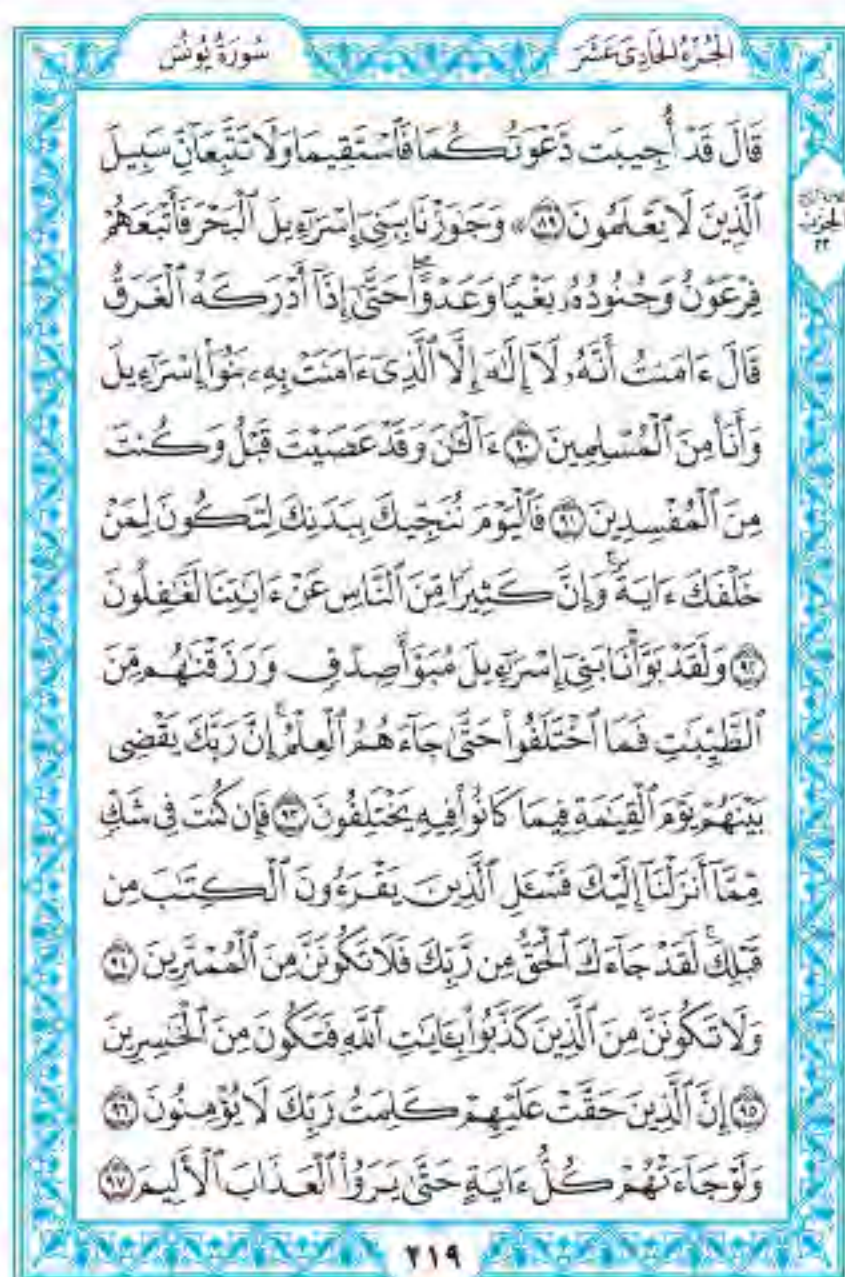 الجزء الحادي عشر
سورة يونس
قَالَ قَدْ أُجِيبَت دَّعْوَتُكُمَا فَٱسْتَقِيمَا وَلَا تَتَّبِعَآنِّ سَبِيلَ
ٱلَّذِينَ لَا يَعْلَمُونَ ﴿٨٩﴾ ۞ وَجَٰوَزْنَا بِبَنِىٓ إِسْرَٰٓءِيلَ ٱلْبَحْرَ فَأَتْبَعَهُمْ
فِرْعَوْنُ وَجُنُودُهُۥ بَغْيًا وَعَدْوًا ۖ حَتَّىٰٓ إِذَآ أَدْرَكَهُ ٱلْغَرَقُ
قَالَ ءَامَنتُ أَنَّهُۥ لَآ إِلَٰهَ إِلَّا ٱلَّذِىٓ ءَامَنَتْ بِهِۦ بَنُوٓا۟ إِسْرَٰٓءِيلَ
وَأَنَا۠ مِنَ ٱلْمُسْلِمِينَ ﴿٩٠﴾ ءَآلْـَٰٔنَ وَقَدْ عَصَيْتَ قَبْلُ وَكُنتَ
مِنَ ٱلْمُفْسِدِينَ ﴿٩١﴾ فَٱلْيَوْمَ نُنَجِّيكَ بِبَدَنِكَ لِتَكُونَ لِمَنْ
خَلْفَكَ ءَايَةً ۚ وَإِنَّ كَثِيرًا مِّنَ ٱلنَّاسِ عَنْ ءَايَٰتِنَا لَغَٰفِلُونَ
﴿٩٢﴾ وَلَقَدْ بَوَّأْنَا بَنِىٓ إِسْرَٰٓءِيلَ مُبَوَّأَ صِدْقٍ وَرَزَقْنَٰهُم مِّنَ
ٱلطَّيِّبَٰتِ فَمَا ٱخْتَلَفُوا۟ حَتَّىٰ جَآءَهُمُ ٱلْعِلْمُ ۚ إِنَّ رَبَّكَ يَقْضِى
بَيْنَهُمْ يَوْمَ ٱلْقِيَٰمَةِ فِيمَا كَانُوا۟ فِيهِ يَخْتَلِفُونَ ﴿٩٣﴾ فَإِن كُنتَ فِى شَكٍّ
مِّمَّآ أَنزَلْنَآ إِلَيْكَ فَسْـَٔلِ ٱلَّذِينَ يَقْرَءُونَ ٱلْكِتَٰبَ مِن
قَبْلِكَ ۚ لَقَدْ جَآءَكَ ٱلْحَقُّ مِن رَّبِّكَ فَلَا تَكُونَنَّ مِنَ ٱلْمُمْتَرِينَ ﴿٩٤﴾
وَلَا تَكُونَنَّ مِنَ ٱلَّذِينَ كَذَّبُوا۟ بِـَٔايَٰتِ ٱللَّهِ فَتَكُونَ مِنَ ٱلْخَٰسِرِينَ
﴿٩٥﴾ إِنَّ ٱلَّذِينَ حَقَّتْ عَلَيْهِمْ كَلِمَتُ رَبِّكَ لَا يُؤْمِنُونَ ﴿٩٦﴾
وَلَوْ جَآءَتْهُمْ كُلُّ ءَايَةٍ حَتَّىٰ يَرَوُا۟ ٱلْعَذَابَ ٱلْأَلِيمَ ﴿٩٧﴾
الحزب
٢٢
٢١٩